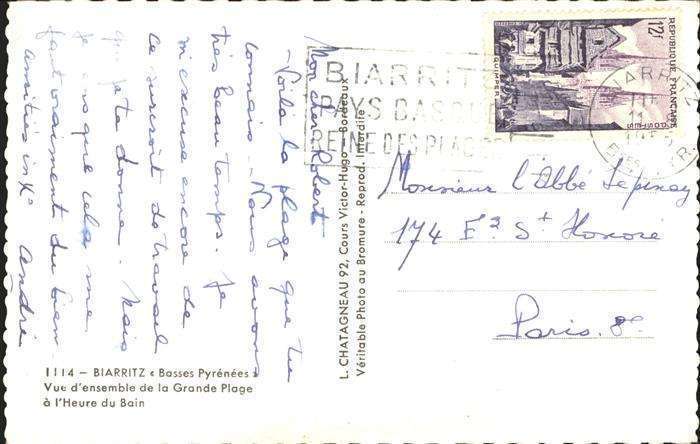 Mon cher Robert
- Voilà la plage que tu
connais - Nous avons
très beau temps. Je
m'excuse encore de
ce surcroît de travail
que je te donne. Mais
je que cela me
fait vraiment du bien
amitiés in Xº André
1114 - BIARRITZ « Basses Pyrénées »
Vue d'ensemble de la Grande Plage
à l'Heure du Bain
L. CHATAGNEAU 92, Cours Victor-Hugo - Bordeaux
Véritable Photo au Bromure - Reprod. Interdite
BIARRITZ
PAYS BASQUE
REINE DES PLAGES
12f
REPUBLIQUE FRANÇAISE
QUIMPER
POSTES
Monsieur l'Abbé Lepinay
174 Fg St Honoré
Paris. 8e